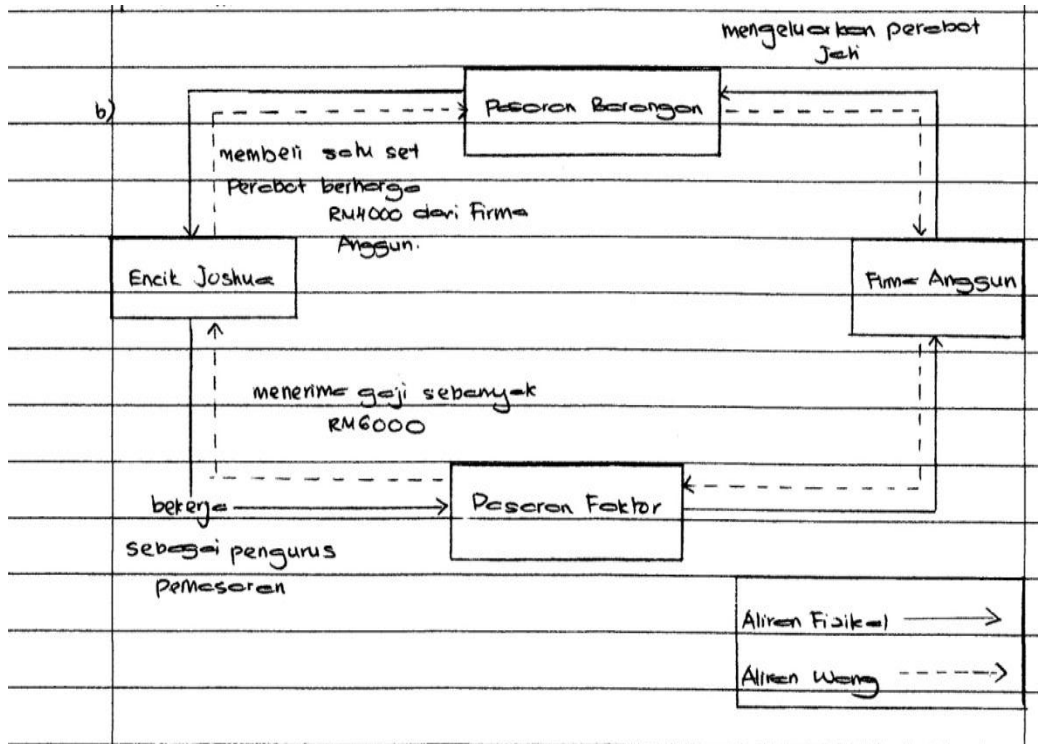 mengeluarkan perabot
Jati
b)
Pasaran Barangan
memberi satu set
Perabot berharga
RM4000 dari Firma
Anggun.
Encik Joshua
Firma Anggun
menerima gaji sebanyak
RM6000
Pasaran Faktor
bekerja
sebagai pengurus
pemasaran
Aliran Fizikal
Aliran Wang